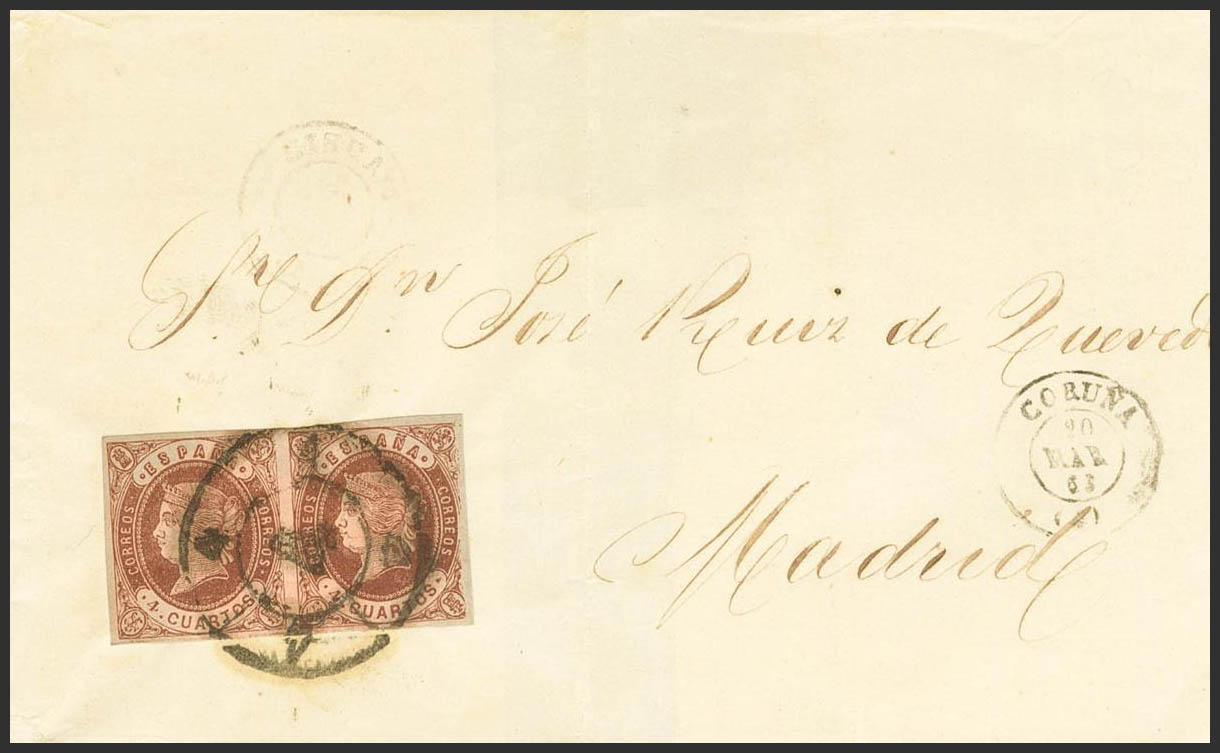 Sr. Dn. José Ruiz de Quevedo
Madrid
CORUÑA
20
MAR
63
ESPAÑA
CORREOS
CORREOS
4 CUARTOS
ESPAÑA
CORREOS
CORREOS
4 CUARTOS